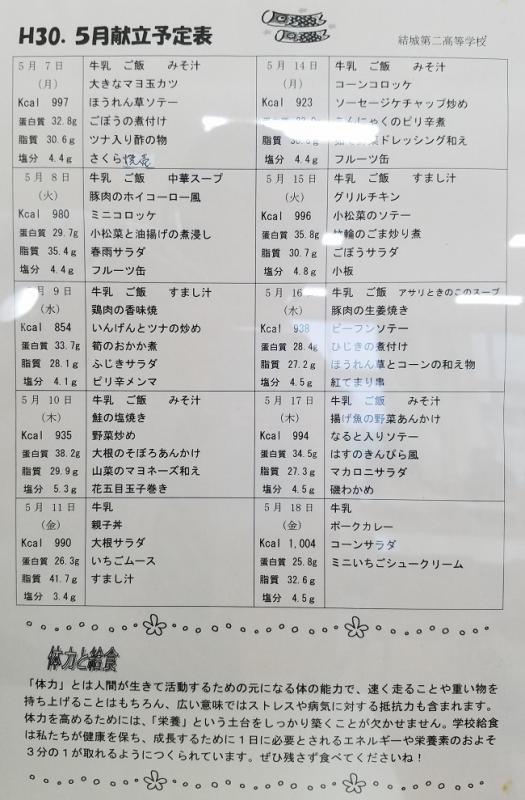 H30. 5月献立予定表
結城第二高等学校
5月 7日
(月)
Kcal 997
蛋白質 32.8g
脂質 30.6g
塩分 4.4g
牛乳 ご飯 みそ汁
大きなマヨ玉カツ
ほうれん草ソテー
ごぼうの煮付け
ツナ入り酢の物
さくら
5月 14日
(月)
Kcal 923
蛋白質
脂質
塩分 4.4g
牛乳 ご飯 みそ汁
コーンコロッケ
ソーセージケチャップ炒め
こんにゃくのピリ辛煮
ドレッシング和え
フルーツ缶
5月 8日
(火)
Kcal 980
蛋白質 29.7g
脂質 35.4g
塩分 4.4g
牛乳 ご飯 中華スープ
豚肉のホイコーロー風
ミニコロッケ
小松菜と油揚げの煮浸し
春雨サラダ
フルーツ缶
5月 15日
(火)
Kcal 996
蛋白質 35.8g
脂質 30.7g
塩分 4.8g
牛乳 ご飯 すまし汁
グリルチキン
小松菜のソテー
竹輪のごま炒り煮
ごぼうサラダ
小板
月 9日
(水)
Kcal 854
蛋白質 33.7g
脂質 28.1g
塩分 4.1g
牛乳 ご飯 すまし汁
鶏肉の香味焼
いんげんとツナの炒め
筍のおかか煮
ふじきサラダ
ピリ辛メンマ
5月 16
(水)
Kcal 938
蛋白質 28.4g
脂質 27.2g
塩分 4.5g
牛乳 ご飯 アサリときのこのスープ
豚肉の生姜焼き
ビーフンソテー
ひじきの煮付け
ほうれん草とコーンの和え物
紅てまり串
5月 10日
(木)
Kcal 935
蛋白質 38.2g
脂質 29.9g
塩分 5.3g
牛乳 ご飯 みそ汁
鮭の塩焼き
野菜炒め
大根のそぼろあんかけ
山菜のマヨネーズ和え
花五目玉子巻き
5月 17日
(木)
Kcal 994
蛋白質 34.5g
脂質 27.3g
塩分 4.5g
牛乳 ご飯 みそ汁
揚げ魚の野菜あんかけ
なると入りソテー
はすのきんぴら風
マカロニサラダ
磯わかめ
5月 11日
(金)
Kcal 990
蛋白質 26.3g
脂質 41.7g
塩分 3.4g
牛乳
親子丼
大根サラダ
いちごムース
すまし汁
5月 18日
(金)
Kcal 1,004
蛋白質 25.8g
脂質 32.6g
塩分 4.5g
牛乳
ポークカレー
コーンサラダ
ミニいちごシュークリーム
体力と給食
「体力」とは人間が生きて活動するための元になる体の能力で、速く走ることや重い物を
持ち上げることはもちろん、広い意味ではストレスや病気に対する抵抗力も含まれます。
体力を高めるためには、「栄養」という土台をしっかり築くことが欠かせません。学校給食
は私たちが健康を保ち、成長するために1日に必要とされるエネルギーや栄養素のおよそ
3分の1が取れるようにつくられています。ぜひ残さず食べてくださいね!